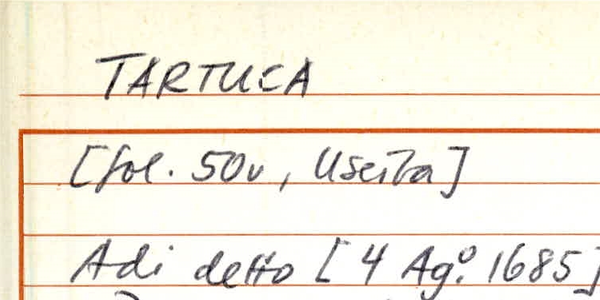 TARTUCA
[fol. 50v, Uscita]
Adi detto [4 Ag.º 1685]